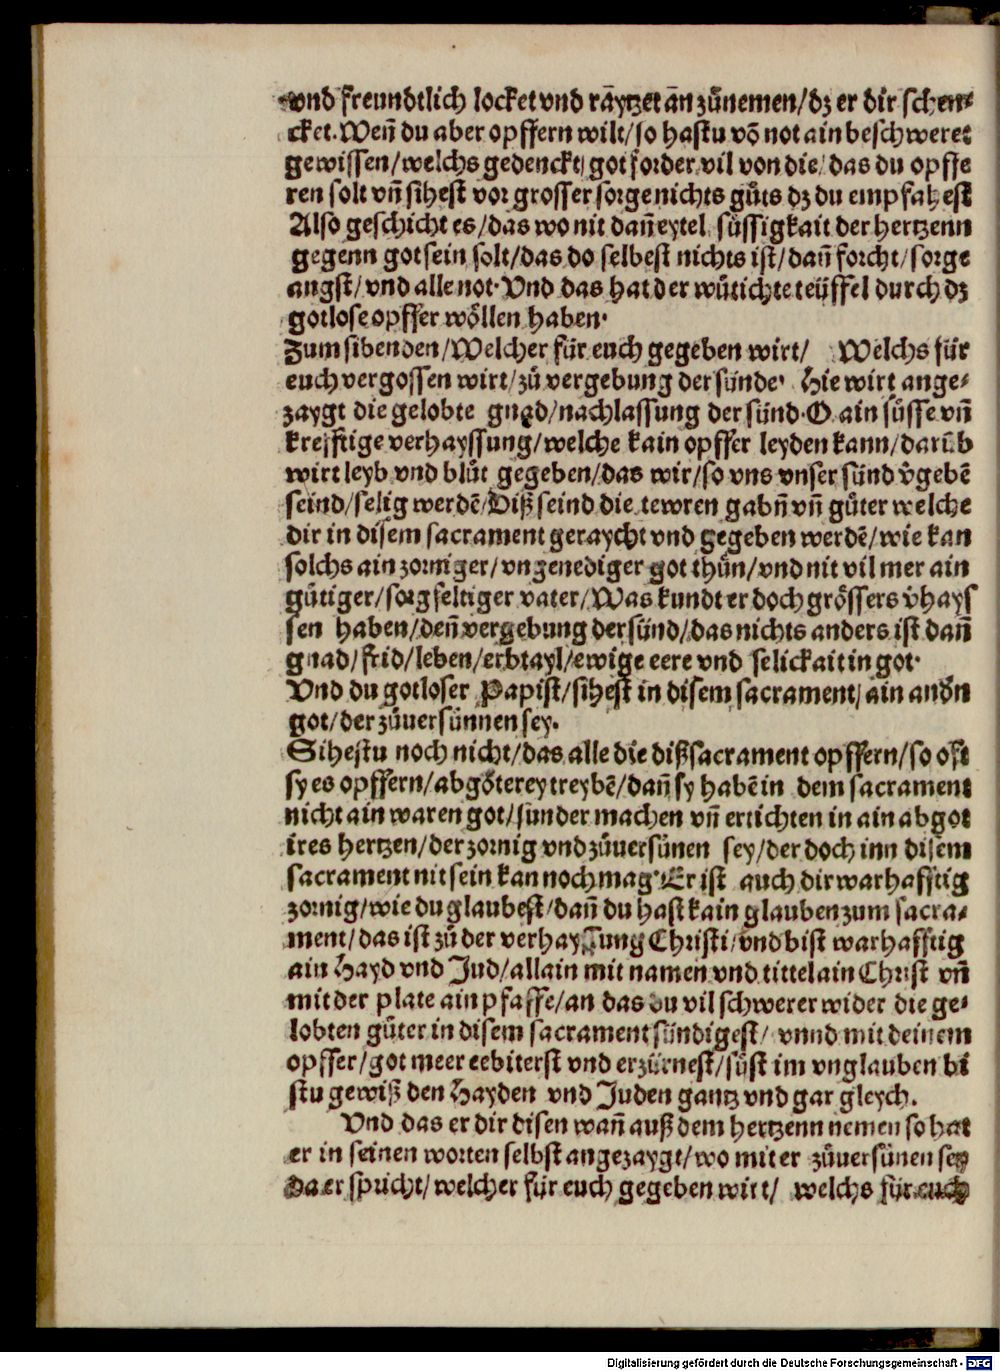 vnd freundtlich locket vnd räytzet an zůnemen/dz er dir schen⸗
cket. Weñ du aber opffern wilt/so hastu võ not ain beschweret
gewissen/welchs gedenckt/got forder vil von die/das du opffe
ren solt vñ sihest vor grosser sorge nichts gůts dz du empfahest
Also geschicht es/das wo nit dañ eytel süssigkait der hertzenn
gegenn got sein solt/das do selbest nichts ist/dañ forcht/sorge
angst/vnd alle not. Vnd das hat der wütichte teüffel durch dz
gotlose opffer wöllen haben.
Zum sibenden/Welcher für euch gegeben wirt/ Welchs für
euch vergossen wirt/zů vergebung der sünde. Hie wirt ange⸗
zaygt die gelobte gnad/nachlassung der sünd. O ain süsse vñ
krefftige verhayssung/welche kain opffer leyden kann/darüb
wirt leyb vnd blůt gegeben/das wir/so vns vnser sünd v̓gebē
seind/selig werdē/Diß seind die tewren gabñ vñ güter welche
dir in disem sacrament geraycht vnd gegeben werdē/wie kan
solchs ain zorniger/vngenediger got thůn/vnd nit vil mer ain
gütiger/sorgfeltiger vater/Was kundt er doch grössers v̓hays
sen haben/deñ vergebung der sünd/das nichts anders ist dañ
gnad/frid/leben/erbtayl/ewige eere vnd selickait in got.
Vnd du gotloser Papist/sihest in disem sacrament/ain andñ
got/der zůuersünnen sey.
Sihestu noch nicht/das alle die diß sacrament opffern/so offt
sy es opffern/abgötterey treybē/dañ sy habē in dem sacrament
nicht ain waren got/sunder machen vñ ertichten in ain abgot
ires hertzen/der zornig vnd zůuersünen sey/der doch inn disem
sacrament nit sein kan noch mag. Er ist auch dir warhafftig
zornig/wie du glaubest/dañ du hast kain glauben zum sacra⸗
ment/das ist zů der verhayssung Christi/vnd bist warhafftig
ain Hayd vnd Jud/allain mit namen vnd tittel ain Christ vñ
mit der plate ain pfaffe/an das du vil schwerer wider die ge⸗
lobten güter in disem sacrament sündigest/ vnnd mit deinem
opffer/got meer eebiterst vnd erzürnest/süst im vnglauben bi
stu gewiß den Hayden vnd Juden gantz vnd gar gleych.
Vnd das er dir disen wañ auß dem hertzenn nemen so hat
er in seinen worten selbst angezaygt/wo mit er zůuersünen sey
da er spricht/welcher für euch gegeben wirt/ welchs für euch
Digitalisierung gefördert durch die Deutsche Forschungsgemeinschaft - DFG